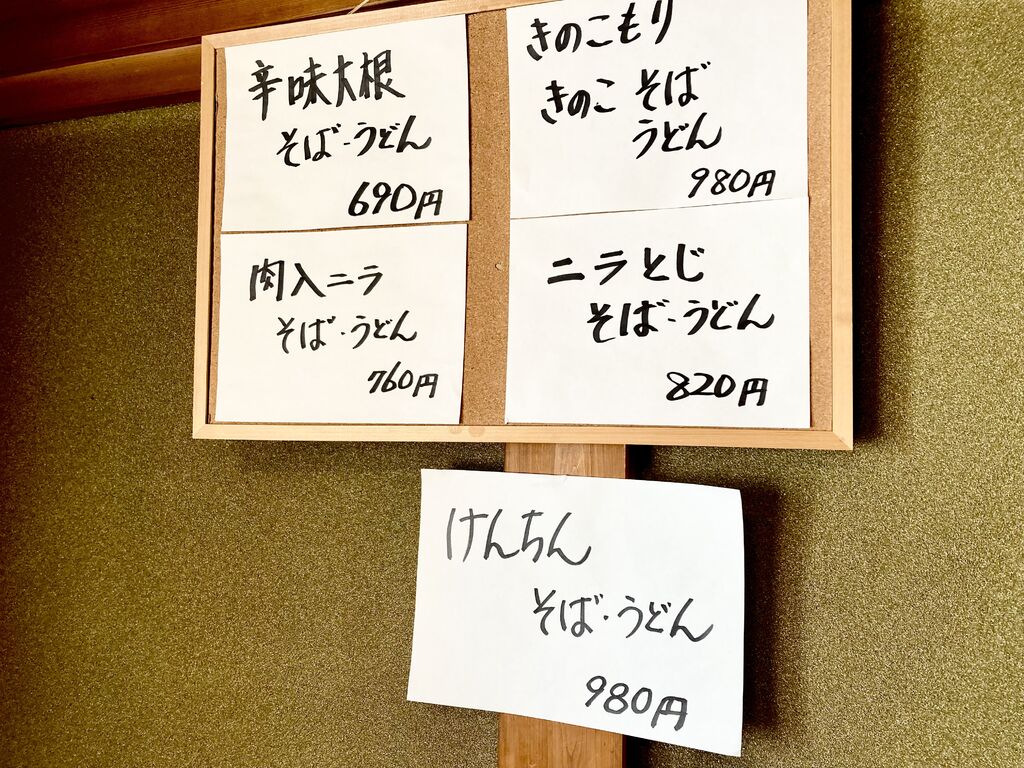 辛味大根
そば・うどん
690円
きのこもり
きのこ そば
うどん
980円
肉入ニラ
そば・うどん
760円
ニラとじ
そば・うどん
820円
けんちん
そば・うどん
980円